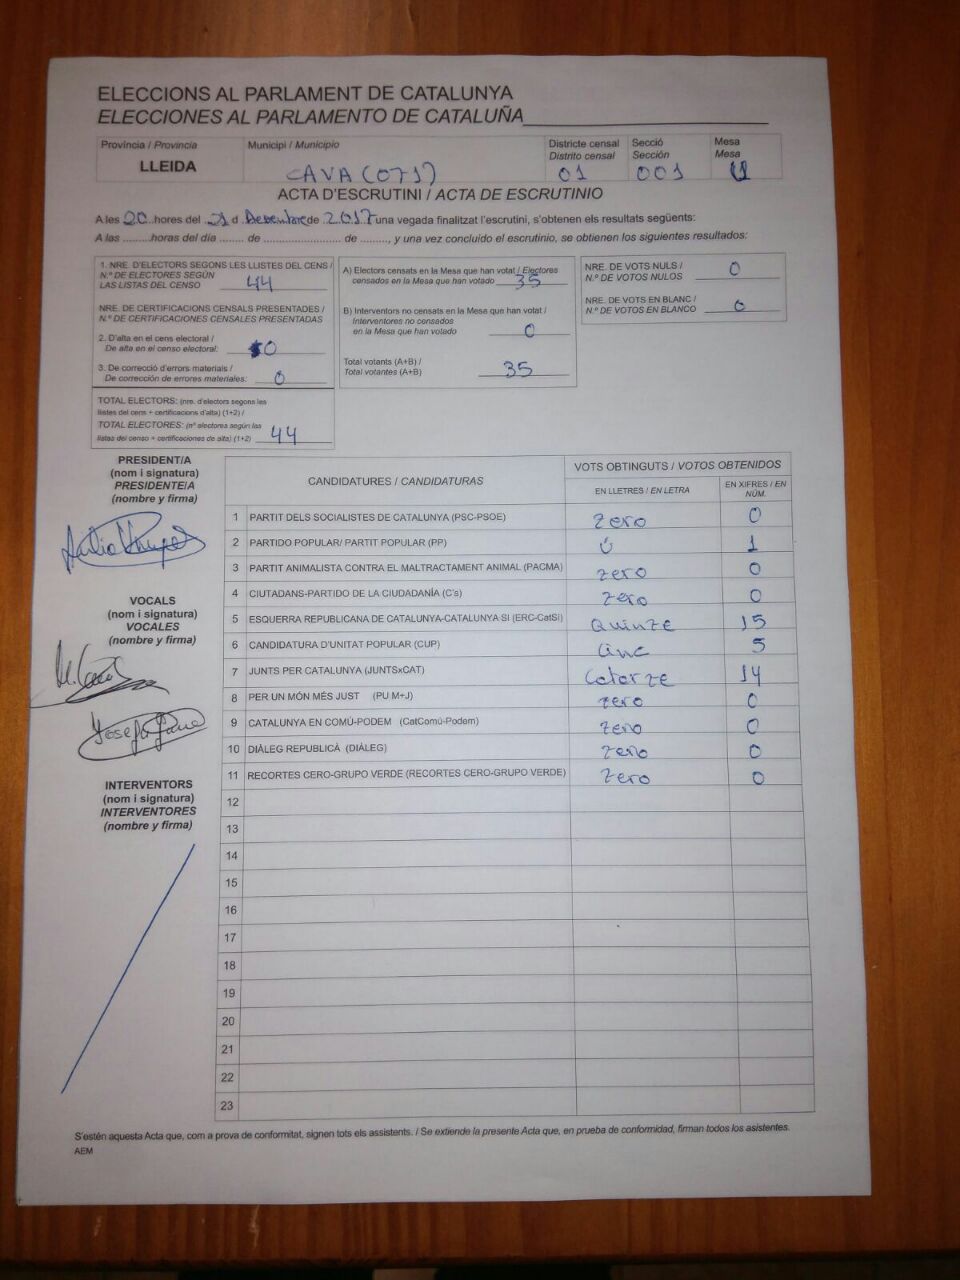 ELECCIONS AL PARLAMENT DE CATALUNYA
ELECCIONES AL PARLAMENTO DE CATALUÑA
Província / Provincia
LLEIDA
Municipi / Municipio
CAVA (071)
Districte censal
Distrito censal
01
Secció
Sección
001
Mesa
Mesa
U
ACTA D'ESCRUTINI / ACTA DE ESCRUTINIO
A les 20 hores del 21 d Desembre de 2017 una vegada finalitzat l'escrutini, s'obtenen els resultats següents:
A las .........horas del día ....... de ........................ de ........, y una vez concluido el escrutinio, se obtienen los siguientes resultados:
1. NRE. D'ELECTORS SEGONS LES LLISTES DEL CENS /
N.º DE ELECTORES SEGÚN
LAS LISTAS DEL CENSO 44
NRE. DE CERTIFICACIONS CENSALS PRESENTADES /
N.º DE CERTIFICACIONES CENSALES PRESENTADAS
2. D'alta en el cens electoral /
De alta en el censo electoral: 0
3. De correcció d'errors materials /
De corrección de errores materiales: 0
TOTAL ELECTORS: (nre. d'electors segons les
llistes del cens + certificacions d'alta) (1+2) /
TOTAL ELECTORES: (nº electores según las
listas del censo + certificaciones de alta) (1+2) 44
A) Electors censats en la Mesa que han votat / Electores
censados en la Mesa que han votado 35
B) Interventors no censats en la Mesa que han votat /
Interventores no censados
en la Mesa que han votado 0
Total votants (A+B) /
Total votantes (A+B) 35
NRE. DE VOTS NULS /
N.º DE VOTOS NULOS 0
NRE. DE VOTS EN BLANC /
N.º DE VOTOS EN BLANCO 0
PRESIDENT/A
(nom i signatura)
PRESIDENTE/A
(nombre y firma)
VOCALS
(nom i signatura)
VOCALES
(nombre y firma)
INTERVENTORS
(nom i signatura)
INTERVENTORES
(nombre y firma)
CANDIDATURES / CANDIDATURAS
VOTS OBTINGUTS / VOTOS OBTENIDOS
EN LLETRES / EN LETRA
EN XIFRES / EN NÚM.
1 PARTIT DELS SOCIALISTES DE CATALUNYA (PSC-PSOE) zero 0
2 PARTIDO POPULAR/ PARTIT POPULAR (PP) Ú 1
3 PARTIT ANIMALISTA CONTRA EL MALTRACTAMENT ANIMAL (PACMA) zero 0
4 CIUTADANS-PARTIDO DE LA CIUDADANÍA (C's) zero 0
5 ESQUERRA REPUBLICANA DE CATALUNYA-CATALUNYA SÍ (ERC-CatSí) Quinze 15
6 CANDIDATURA D'UNITAT POPULAR (CUP) Cinc 5
7 JUNTS PER CATALUNYA (JUNTSxCAT) Catorze 14
8 PER UN MÓN MÉS JUST (PU M+J) zero 0
9 CATALUNYA EN COMÚ-PODEM (CatComú-Podem) zero 0
10 DIÀLEG REPUBLICÀ (DIÀLEG) zero 0
11 RECORTES CERO-GRUPO VERDE (RECORTES CERO-GRUPO VERDE) zero 0
12
13
14
15
16
17
18
19
20
21
22
23
S'estén aquesta Acta que, com a prova de conformitat, signen tots els assistents. / Se extiende la presente Acta que, en prueba de conformidad, firman todos los asistentes.
AEM